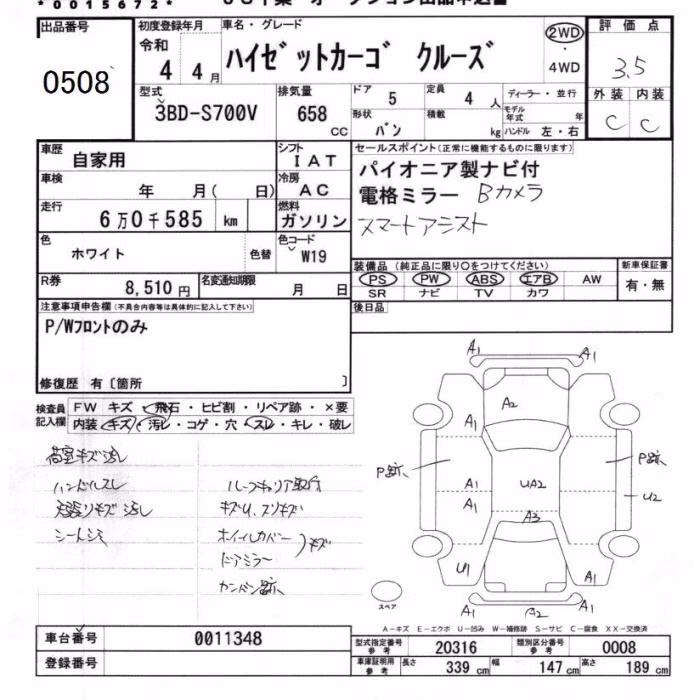 *0015672*
出品番号
0508
初度登録年月
令和
4 4月
車名・グレード
ハイゼットカーゴ クルーズ
2WD
・
4WD
評価点
3.5
外装 内装
C C
型式
3BD-S700V
排気量
658
CC
ドア
5
定員
4 人
ディーラー・並行
形状
バン
積載
kg
モデル年式
年
ハンドル 左・右
車歴
自家用
シフト
IAT
車検
年 月( 日)
冷房
AC
走行
6万0千585 km
燃料
ガソリン
色
ホワイト
色替
色コード
W19
R券
8,510円
名変通知期限
月 日
セールスポイント(正常に機能するものに限ります)
パイオニア製ナビ付
電格ミラー Bカメラ
スマートアシスト
装備品(純正品に限り○をつけてください)
PS PW ABS エアB AW
SR ナビ TV カワ
新車保証書
有・無
後日品
注意事項申告欄(不具合内容等は具体的に記入して下さい)
P/Wフロントのみ
修復歴 有〔箇所 〕
検査員記入欄
FW キズ・飛石・ヒビ割・リペア跡・×要
内装・キズ・汚レ・コゲ・穴・スレ・キレ・破レ
ハンドルスレ
シートシミ
ルーフキャリア取付
ホイールカバー
ドアミラー
キズ
A1
A1
A2
A1
A1
A1
UA2
A3
U2
U1
A1
A1
A2
A1
スペア
A－キズ E－エクボ U－凹み W－補修跡 S－サビ C－腐食 XX－交換済
車台番号
0011348
登録番号
型式指定番号
参考
20316
類別区分番号
参考
0008
車庫証明用
参考
長さ
339 cm
幅
147 cm
高さ
189 cm